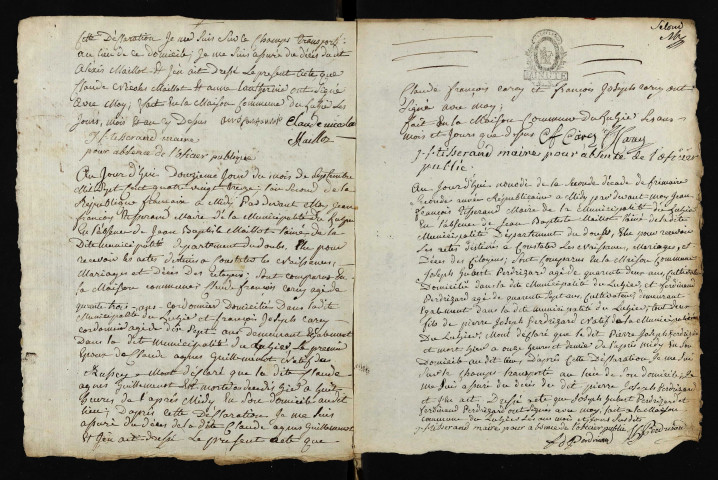 Cette Déclaration Je me suis sur le Champs transporté
au lieu de ce domicile, Je me suis assuré du décès dudit
Alexis Maillot Et J'en ait Dressé Le présent acte que
Claude Nicolas Maillot Et anne
avec Moy, fait en la Maison Commune du Luhier Les
Jours, Mois et an Claude nicolas
J f tisserand maire Maillot
pour absence de l'oficier publique
Au Jourd'huy Douzieme Jour du mois de Septembre
Mil Sept Cent quatre vingt treize l'an Second de la
République francaise a Midy Pardevant Moy Jean
françois tisserand Maire de la Municipalité du Luhier
En l'absence de Jean Baptiste Maillot
Dite municipalité département du doubs. Elu pour
recevoir les actes destinés a Constater les Naissances,
Mariages et Décès des Citoyens; Sont comparus En
la Maison commune Claude françois carey agé de
quarante trois ans cordonnier Domicilié Dans la dite
Municipalité du Luhier Et françois Joseph carey
cordonnier agé de Sept ans demeurant Egalement
Dans la dite municipalité du Luhier Le premier
Epoux de Claude agnes Guillemenot native du
Russey a Moy déclaré que la dite Claude
agnes Guillemenot Est morte hier a huit
heures de l'apres Midy En son domicile audit
lieu; D'apres Cette Déclaration Je me suis
assuré du décès de la dite Claude agnes Guillemenot
Et J'en ait dressé Le présent acte que
Claude françois carey et françois Joseph carey ont
Signé avec moy;
fait en la Maison Commune du Luhier Les ans
mois et Jours que dessus Cf Carey
J f tisserand maire pour absence de l'oficier
public
Au Jourd'huy neuvieme de la Seconde décade de frimaire
Seconde année Républicaine a Midy pardevant moy Jean
François tisserand Maire de la Municipalité du Luhier
En l'absence de Jean Baptiste Maillot
Municipalité Département du doubs, Elu pour recevoir
Les actes destinés a Constater les Naissances, Mariages, et
Décès des Citoyens, Sont Comparus En la Maison Commune
Joseph hubert Perdrizard agé de quarante deux ans Cultivateur
Domicilié dans la dite Municipalité du Luhier, et ferdinand
Perdrizard agé de quarante Sept ans Cultivateur, demeurant
Egalement dans la dite municipalité du Luhier, tout deux
fils de pierre Joseph Perdrizard natif de la Municipalité
Du Luhier, Mont déclaré que le dit Pierre Joseph Perdrizard
est mort hier a onze heures de l'apres Midy en son
Domicile audit lieu, D'apres Cette Déclaration Je me suis
Sur le champs transporté au lieu de son domicile, Je
me suis assuré du décès du dit pierre Joseph Perdrizard
et J'en ait Dressé acte que Joseph hubert Perdrizard et
ferdinand Perdrizard ont Signés avec moy, fait a la Maison
commune du Luhier Les ans mois et Jours Susdits
J f tisserand maire, pour absence de l'oficier public